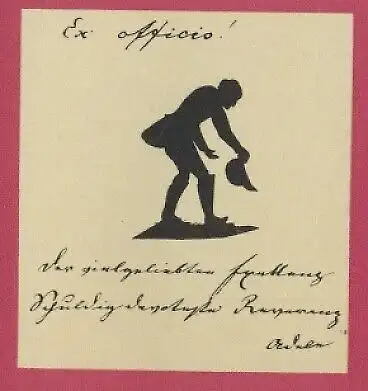 Ex officio!
Der vielgeliebten Exellenz
Schuldig devoteste Reverenz
Adele